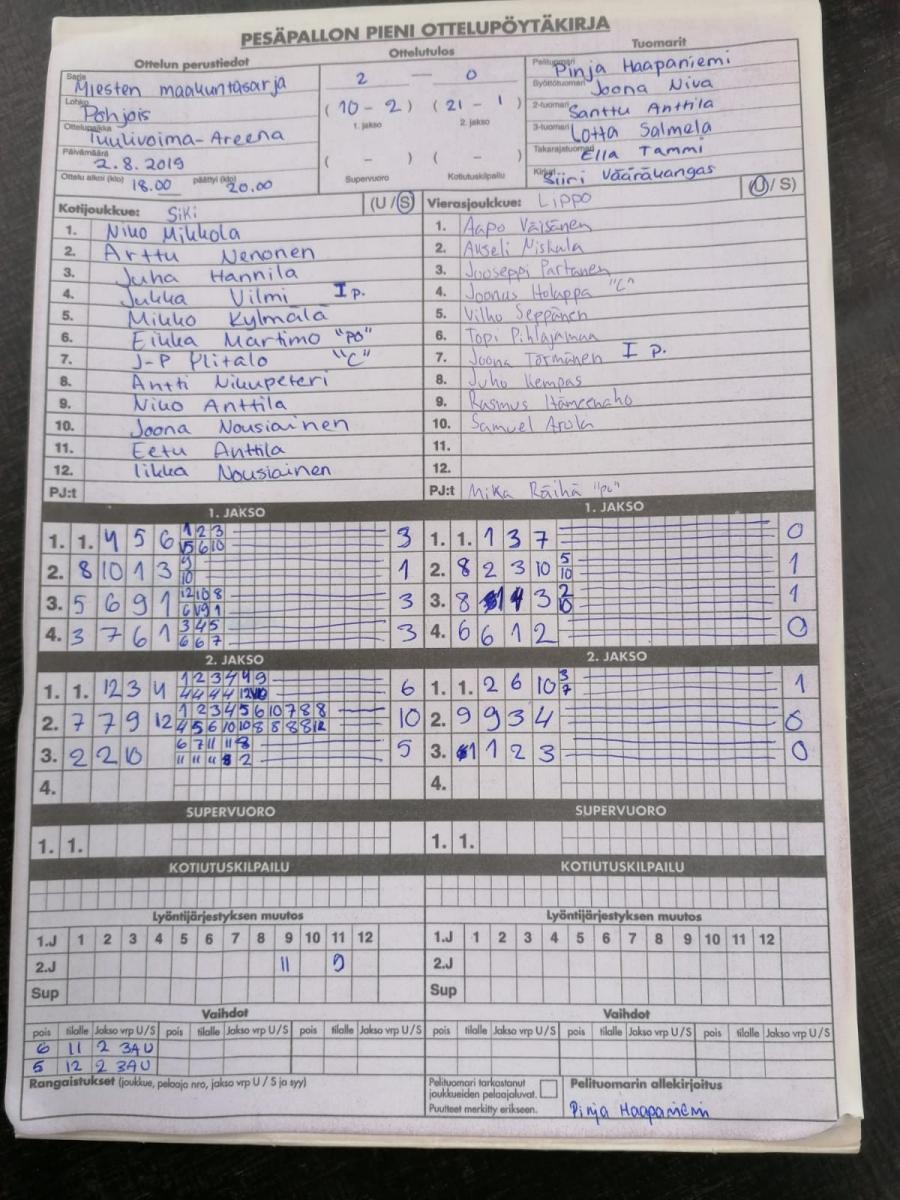 PESÄPALLON PIENI OTTELUPÖYTÄKIRJA
Ottelun perustiedot
Sarja Miesten maakuntasarja
Lohko Pohjois
Ottelupaikka Tuulivoima-Areena
Päivämäärä 2.8.2019
Ottelu alkoi (klo) 18.00 päättyi (klo) 20.00
Ottelutulos
2 — 0
(10 - 2) (21 - 1)
1. jakso 2. jakso
( - ) ( - )
Supervuoro Kotiutuskilpailu
Tuomarit
Pelituomari Pinja Haapaniemi
Syöttötuomari Joona Niva
2-tuomari Santtu Anttila
3-tuomari Lotta Salmela
Takarajatuomari Ella Tammi
Kirjuri Siiri Vääräkangas
Kotijoukkue: Siki (U/S)
1. Niko Mikkola
2. Arttu Nenonen
3. Juha Hannila
4. Jukka Vilmi I p.
5. Mikko Kylmälä
6. Eikka Martimo "PO"
7. J-P Ylitalo "C"
8. Antti Nikupeteri
9. Niko Anttila
10. Joona Nousiainen
11. Eetu Anttila
12. Iikka Nousiainen
PJ:t
Vierasjoukkue: Lippo (U/S)
1. Aapo Väisänen
2. Akseli Niskala
3. Jooseppi Partanen
4. Joonas Holappa "C"
5. Vilho Seppänen
6. Topi Pihlajamaa
7. Joona Törmänen I p.
8. Juho Kempas
9. Rasmus Hämeenaho
10. Samuel Arola
11.
12.
PJ:t Mika Räihä "pj"
1. JAKSO
1. 1. 4 5 6 1 2 3 3
15 6 10
2. 8 10 1 3 9 1
10
3. 5 6 9 1 12 10 8 3
4. 3 7 6 1 3 4 5 3
6 6 7
1. JAKSO
1. 1. 1 3 7 0
2. 8 2 3 10 5 1
10
3. 8 3 2 1
10
4. 6 6 1 2 0
2. JAKSO
1. 1. 12 3 4 1 2 3 4 4 9 6
4 4 4 4 12
2. 7 7 9 12 1 2 3 4 5 6 10 7 8 8 10
4 5 6 10 10 8 8 8 8 12
3. 2 2 10 6 7 11 11 8 5
11 11 11 8 2
4.
2. JAKSO
1. 1. 2 6 10 3 1
7
2. 9 9 3 4 0
3. 1 1 2 3 0
4.
SUPERVUORO
1. 1.
SUPERVUORO
1. 1.
KOTIUTUSKILPAILU
KOTIUTUSKILPAILU
Lyöntijärjestyksen muutos
1.J 1 2 3 4 5 6 7 8 9 10 11 12
2.J 11 9
Sup
Lyöntijärjestyksen muutos
1.J 1 2 3 4 5 6 7 8 9 10 11 12
2.J
Sup
Vaihdot
pois tilalle Jakso vrp U/S pois tilalle Jakso vrp U/S pois tilalle Jakso vrp U/S
6 11 2 3A U
5 12 2 3A U
Vaihdot
pois tilalle Jakso vrp U/S pois tilalle Jakso vrp U/S pois tilalle Jakso vrp U/S
Rangaistukset (joukkue, pelaaja nro, jakso vrp U / S ja syy)
Pelituomari tarkastanut
joukkueiden pelaajaluvat.
Puutteet merkitty erikseen.
Pelituomarin allekirjoitus
Pinja Haapaniemi